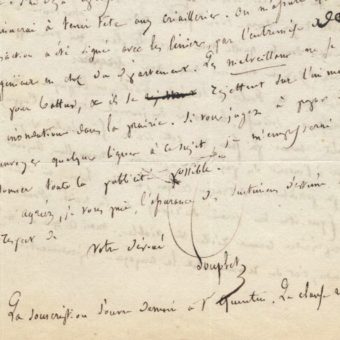 à tenir tête aux criailleries. On m'assure
action a été signé avec les liniers, par l'entremise de
en chef du département. Les malveillans ne se
pour battus, & ils se rejettent sur l'im
inondation dans la prairie. Si vous jugez à propos
quelque lignes à ce sujet, je m'empresserai
donner toute la publicité possible.
agréez, je vous prie, l'assurance des sentimens
respect de
votre dévoué
Souplet
La souscription s'ouvre demain à St Quentin. La clause